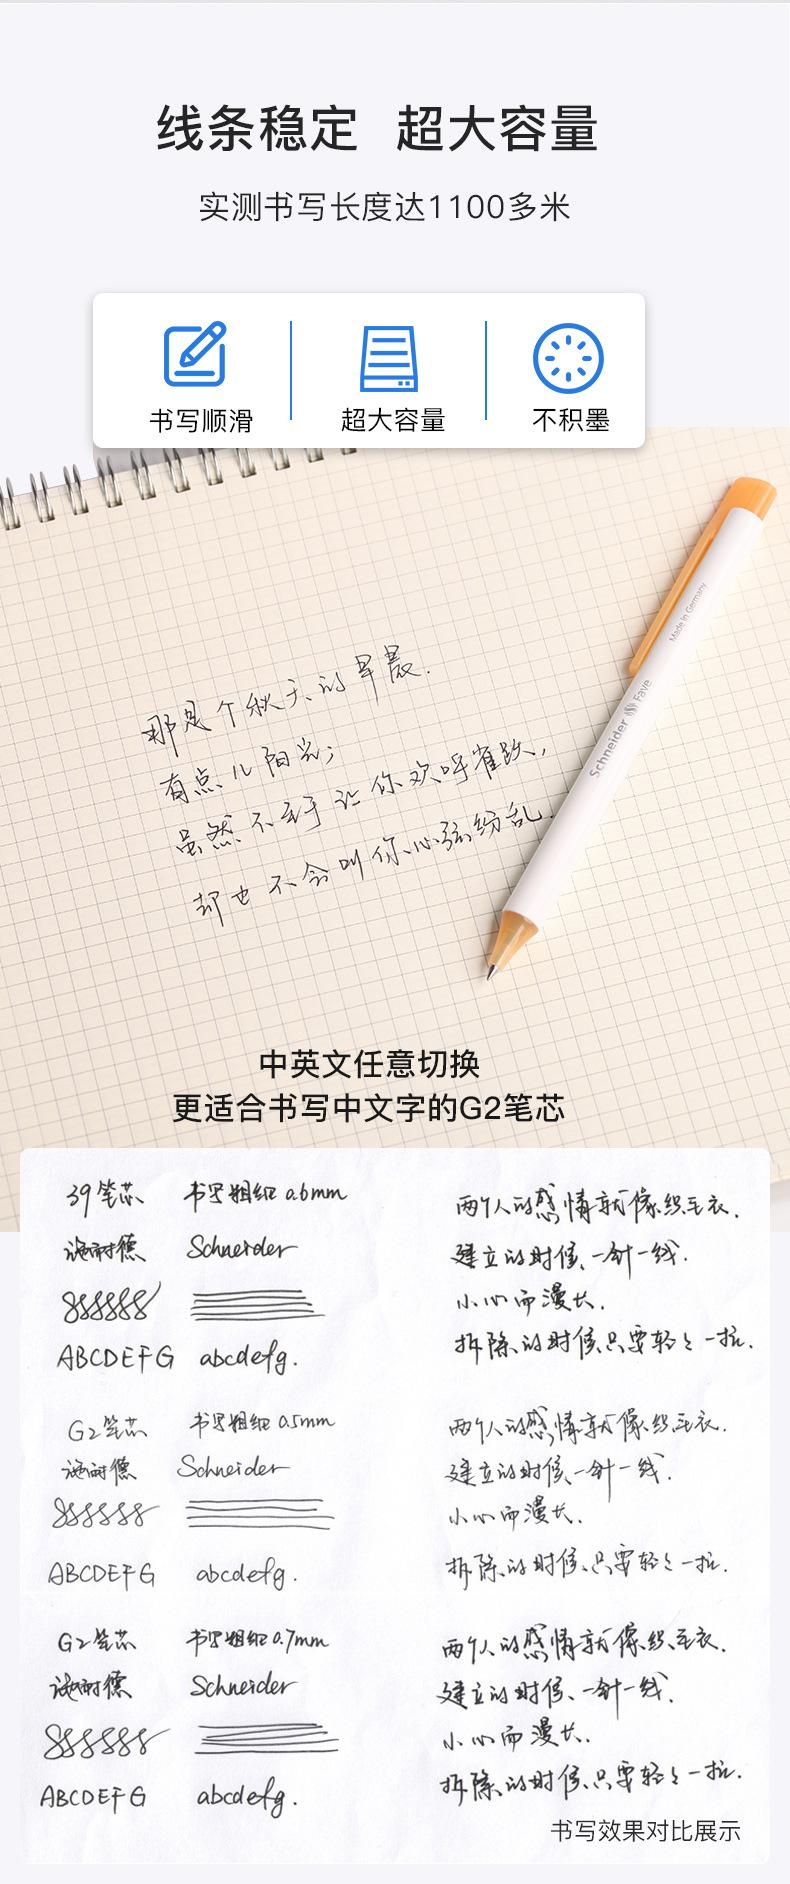 线条稳定 超大容量
实测书写长度达1100多米
书写顺滑
超大容量
不积墨
Made in Germany
Schneider Fave
那是个秋天的早晨.
有点儿阳光;
虽然不至于让你欢呼雀跃,
却也不会叫你心弦纷乱.
中英文任意切换
更适合书写中文字的G2笔芯
39笔芯 书写粗细 0.6mm
施耐德 Schneider
ABCDEFG abcdefg.
两个人的感情就像织毛衣.
建立的时候、一针一线.
小心而漫长.
拆除的时候只要轻轻一拉.
G2笔芯 书写粗细 0.5mm
施耐德 Schneider
ABCDEFG abcdefg.
两个人的感情就像织毛衣.
建立的时候、一针一线.
小心而漫长.
拆除的时候、只要轻轻一拉.
G2笔芯 书写粗细 0.7mm
施耐德 Schneider
ABCDEFG abcdefg.
两个人的感情就像织毛衣.
建立的时候、一针一线.
小心而漫长.
拆除的时候、只要轻轻一拉.
书写效果对比展示